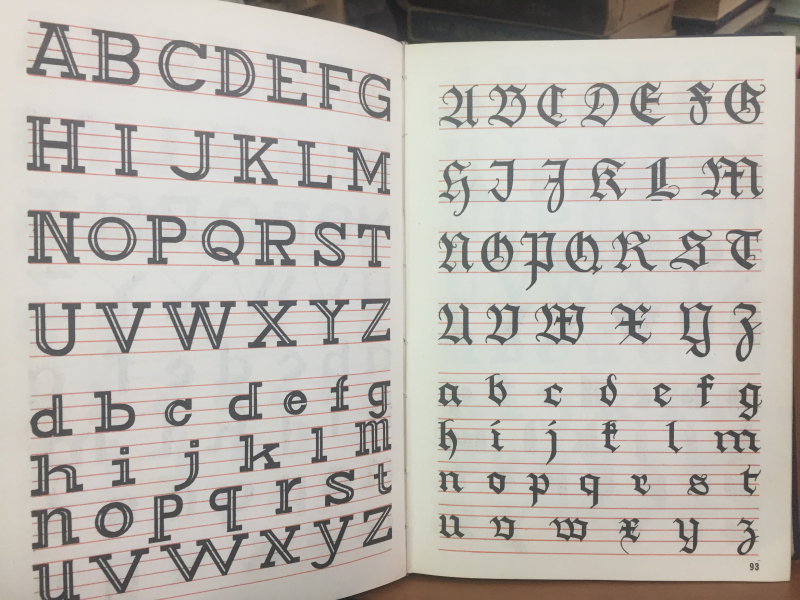 A B C D E F G
H I J K L M
N O P Q R S T
U V W X Y Z
a b c d e f g
h i j k l m
n o p q r s t
u v w x y z
A B C D E F G
H I J K L M
N O P Q R S T
U V W X Y Z
a b c d e f g
h i j k l m
n o p q r s t
u v w x y z
93